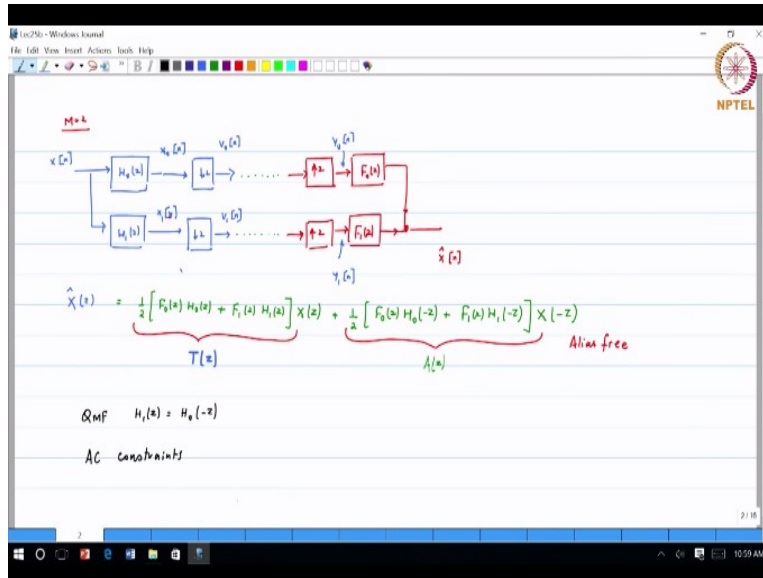 Lec25b - Windows Journal
File Edit View Insert Actions Tools Help
B I
NPTEL
M=2
x[n] H₀(z) x₀[n] ↓2 v₀[n] ....... ↑2 Y₀[n] F₀(z)
H₁(z) x₁[n] ↓2 v₁[n] ....... ↑2 F₁(z)
Y₁[n] x̂[n]
X̂(z) = ½ [ F₀(z) H₀(z) + F₁(z) H₁(z) ] X(z) + ½ [ F₀(z) H₀(-z) + F₁(z) H₁(-z) ] X(-z)
Alias free
T(z) A(z)
QMF H₁(z) = H₀(-z)
AC constraints
2/18
2
10:59 AM